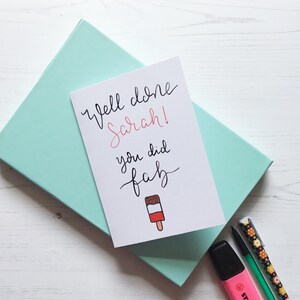 Well done
Sarah!
you did
fab